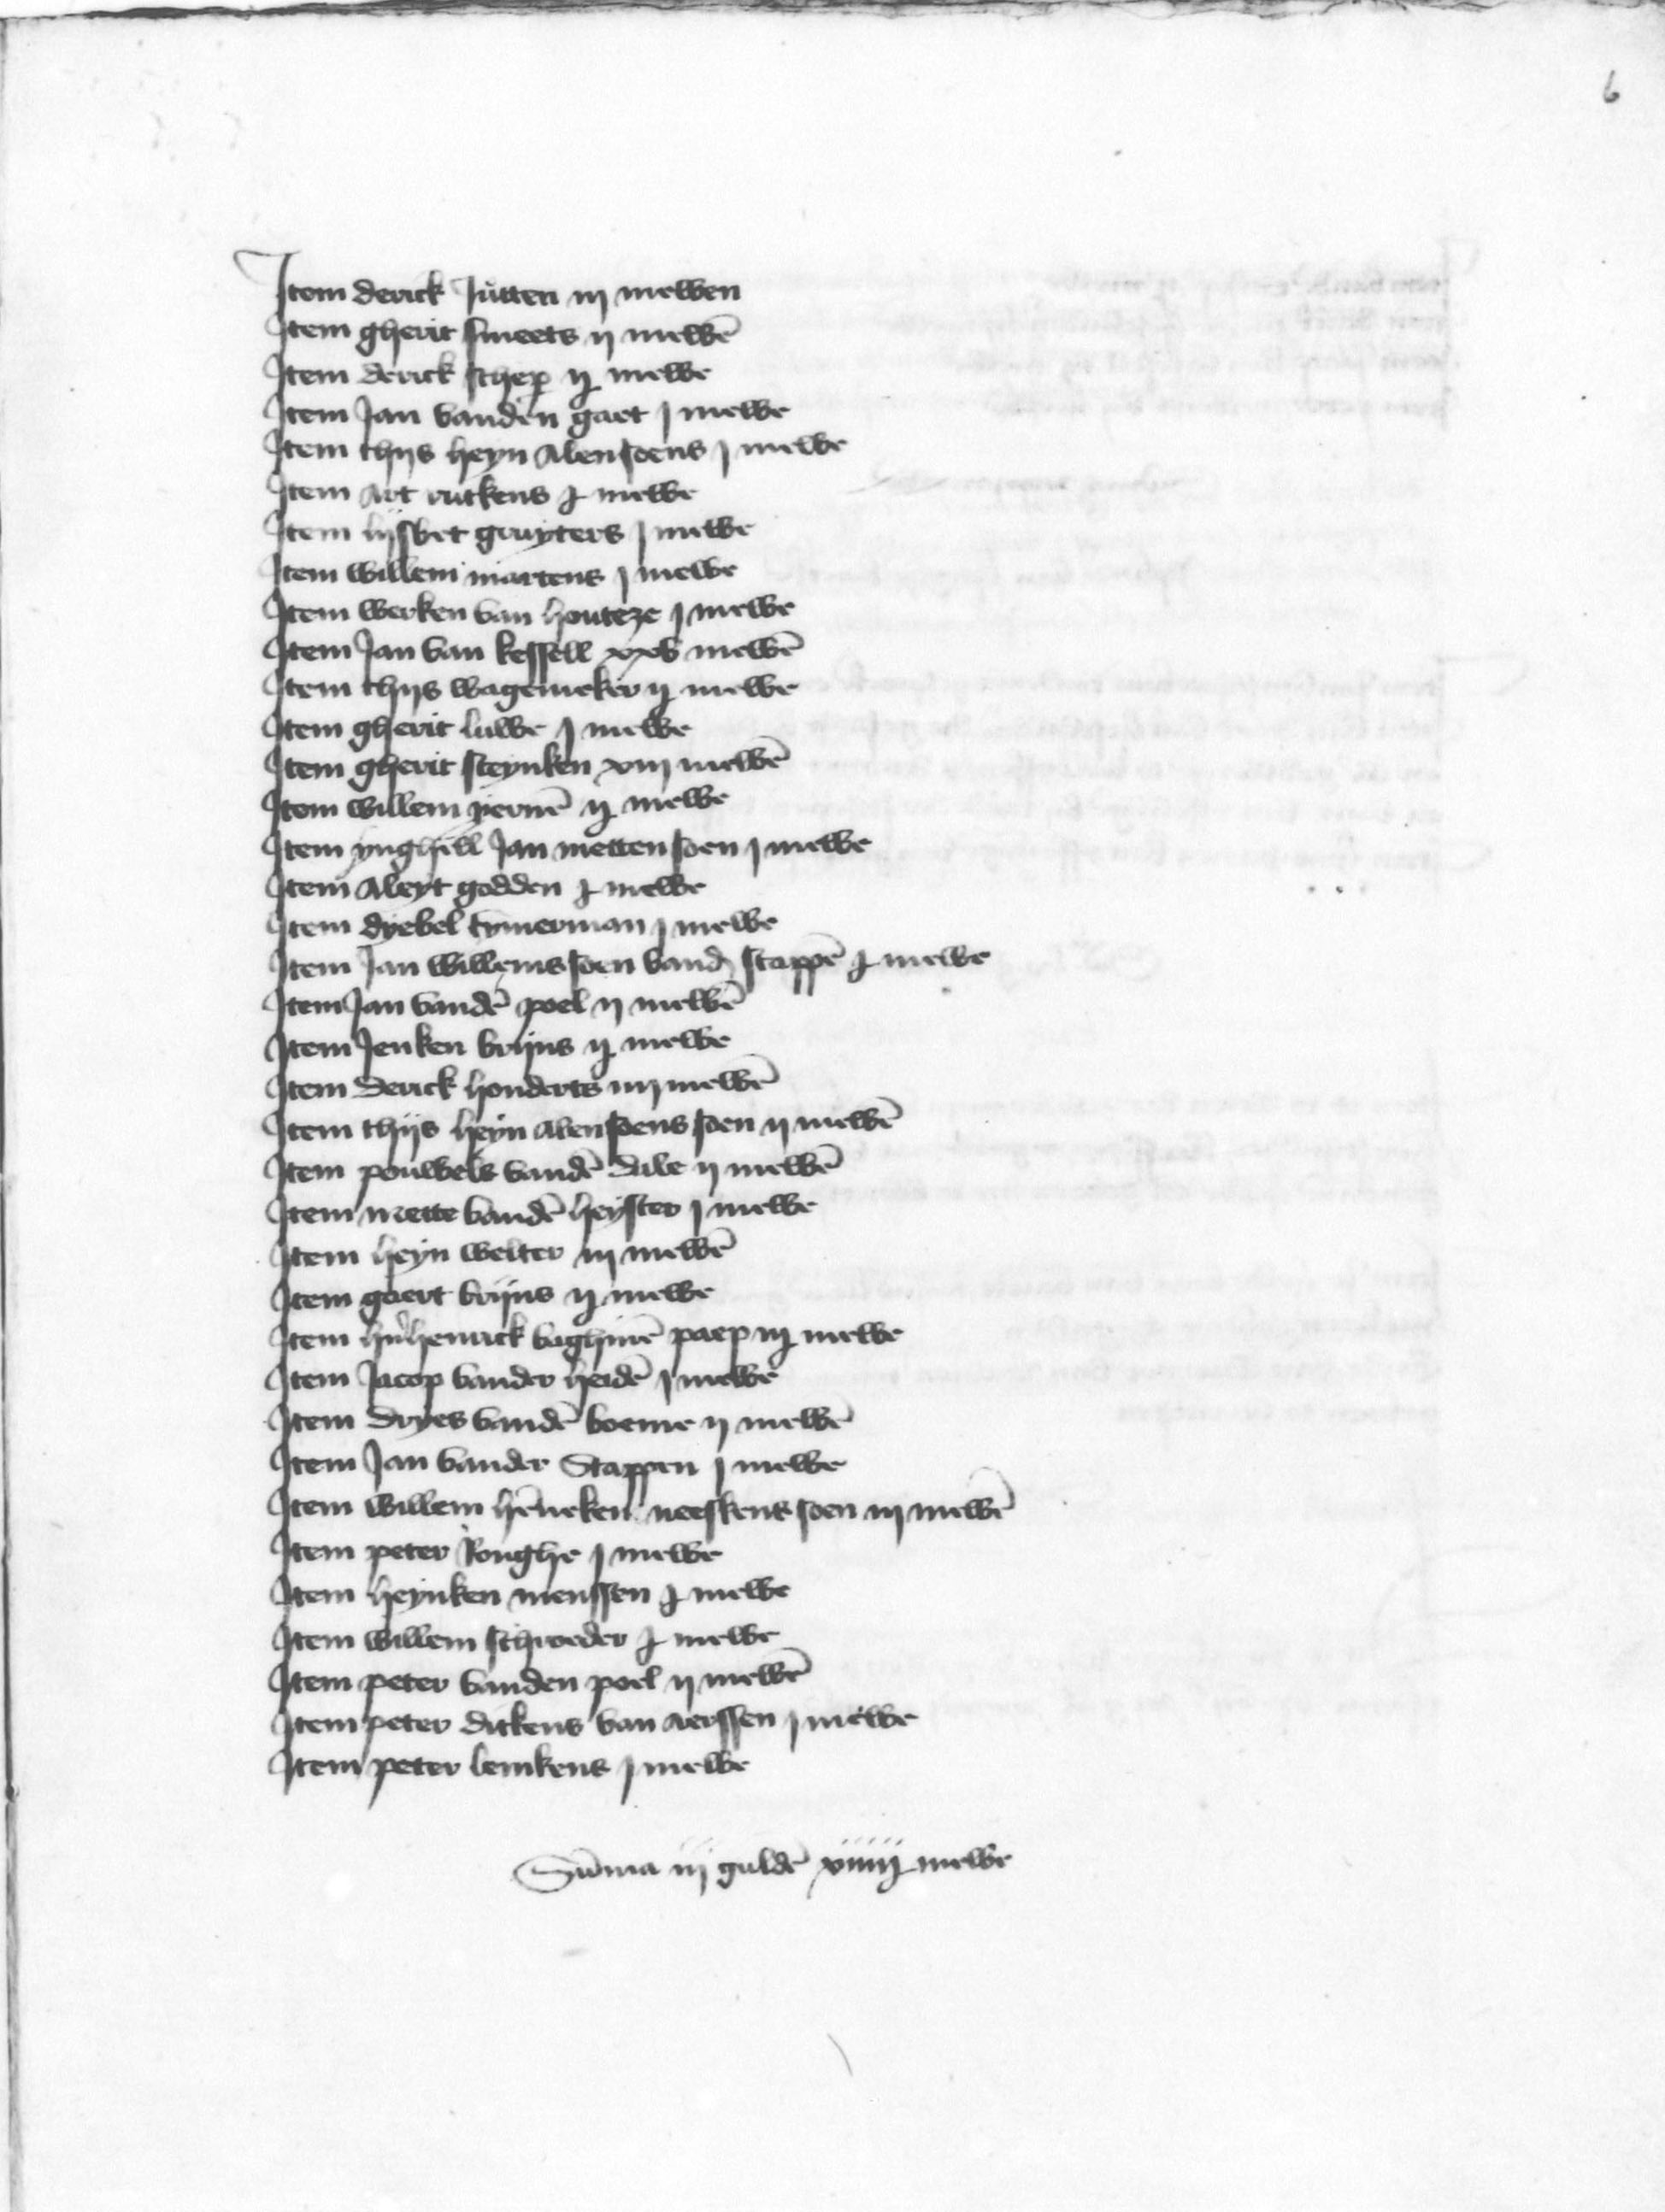 6
Item derick Jutten iij mewen
Item gherit smeets ij mewē
Item derick schep ij mewe
Item Jan vanden gaet j mewe
Item thijs heyn alensoens j mewe
Item art rutkens j mewe
Item lijsbet gruyters j mewe
Item willem martens j mewe
Item werken van houteze j mewe
Item Jan van kessell xxv mewē
Item thijs wagemeker ij mewe
Item gherit luwe j mewe
Item gherit steynken xiij mewē
Item willem yernē ij mewe
Item ynghell Jan metten soen j mewe
Item aleyt godden j mewe
Item dyebel tymerman j mewe
Item Jan willemssoen vand stappē j mewe
Item Jan vandē poel ij mewē
Item Jenken brijns ij mewe
Item derick honderts iiij mewē
Item thijs heyn alensoens soen ij mewē
Item pouwels vandē dale ij mewē
Item mette vandē heyster j mewe
Item heyn welter iij mewē
Item goert brijns ij mewe
Item henrick baghinē paep iij mewe
Item Jacop vander heidē j mewe
Item dryes vandē boeme ij mewē
Item Jan vander Stappen j mewe
Item willem hēneken neeskens soen iij mewē
Item peter Roughe j mewe
Item heynken menssen j mewe
Item willem schroeder j mewe
Item peter vanden poel ij mewē
Item peter dickens van aerssen j mewe
Item peter lemkens j mewe
Sūma iij guldē xiiiij mewe